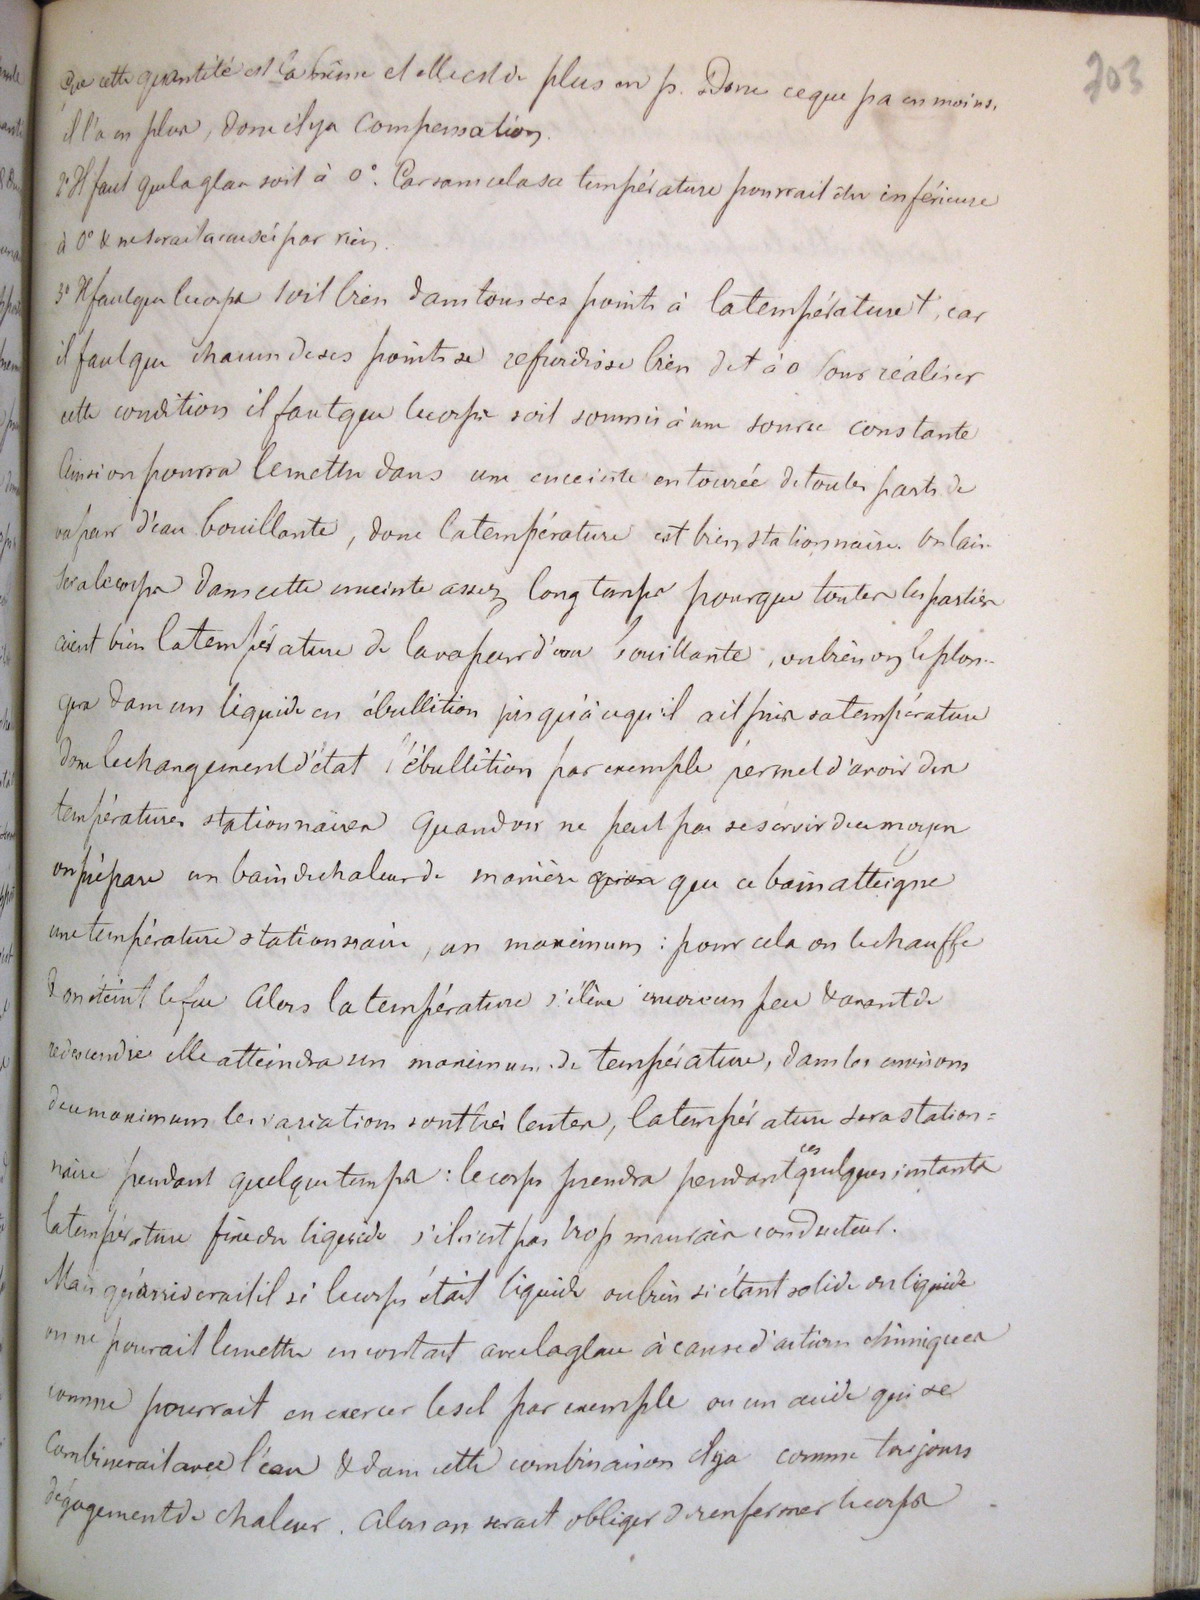 203
que cette quantité est la même et elle est de plus en p. Donc ce que p a en moins,
il l'a en plus, donc il y a compensation.
2° Il faut que la glace soit à 0°. Car sans cela sa température pourrait être inférieure
à 0° & ne serait accusée par rien.
3° Il faut que le corps soit bien dans tous ses points à la température t, car
il faut que chacun de ses points se refroidisse bien de t à 0 Pour réaliser
cette condition il faut que le corps soit soumis à une source constante
Ainsi on pourra le mettre dans une enceinte entourée de toutes parts de
vapeur d'eau bouillante, donc la température est bien stationnaire. On lais-
sera le corps dans cette enceinte assez longtemps pour que toutes les parties
aient bien la température de la vapeur d'eau bouillante, ou bien on le plon-
gera dans un liquide en ébullition jusqu'à ce qu'il ait pris sa température
Donc le changement d'état l'ébullition par exemple permet d'avoir des
températures stationnaires Quand on ne peut pas se servir de ce moyen
on prépare un bain de chaleur de manière que ce bain atteigne
une température stationnaire, un maximum : pour cela on le chauffe
& on éteint le feu Alors la température s'élève encore un peu & avant de
redescendre elle atteindra un maximum de température, dans les environs
de ce maximum les variations sont très lentes, la température sera station=
naire pendant quelque temps : le corps prendra pendant ces quelques instants
la température fixe du liquide s'il n'est pas trop mauvais conducteur.
Mais qu'arriverait il si le corps était liquide ou bien si étant solide ou liquide
on ne pourait le mettre en contact avec la glace à cause d'actions chimiques
comme pourrait en exercer le sel par exemple ou un acide qui se
combinerait avec l'eau & dans cette combinaison il y a comme toujours
dégagement de chaleur. Alors on serait obliger de renfermer le corps